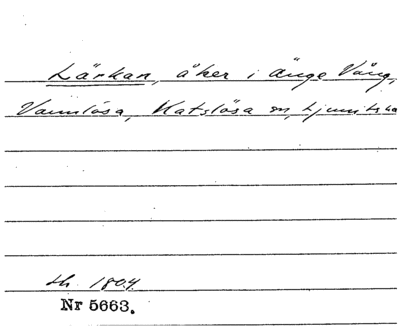 Lärkan, åker i Änge Vång,
Vannlösa, Katslösa sn, Ljunits hd
sk. 1804
Nr 5663.